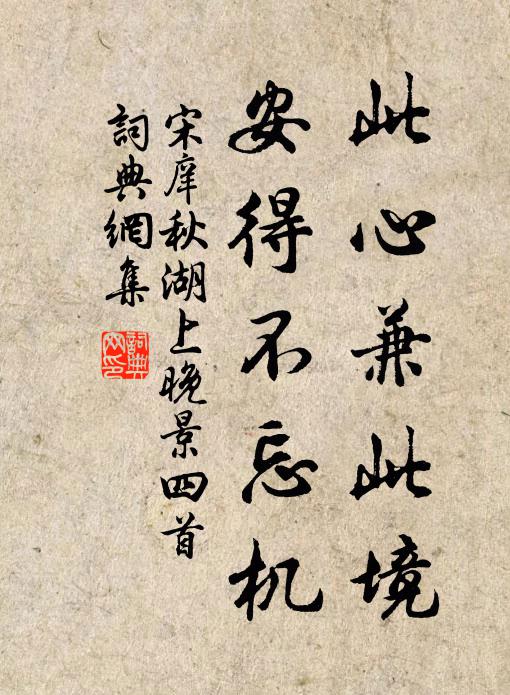 此心兼此境
安得不忘机
宋庠秋湖上晚景四首
詞典網集
詞典網印